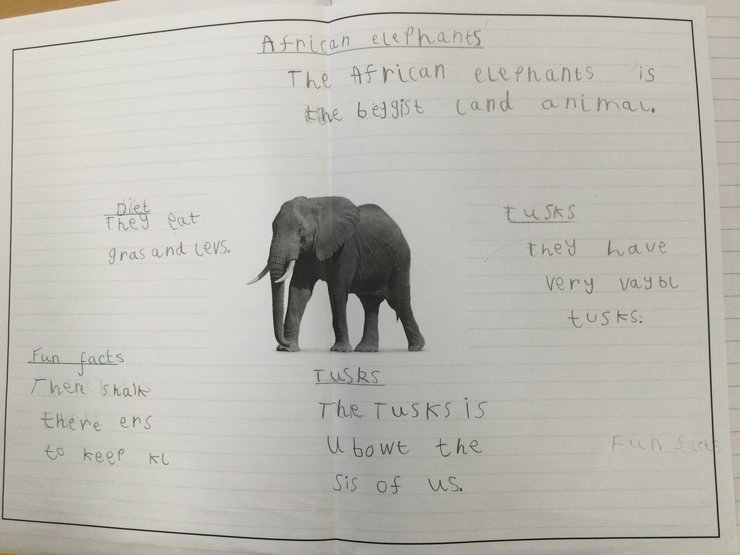 African elephants
The African elephants is
the beggist land animal.
Diet
They eat
gras and levs.
tusks
they have
very vaybl
tusks.
Fun facts
There shalk
there ers
to keep kl
Tusks
The Tusks is
Ubowt the
sis of us.
Fun facts